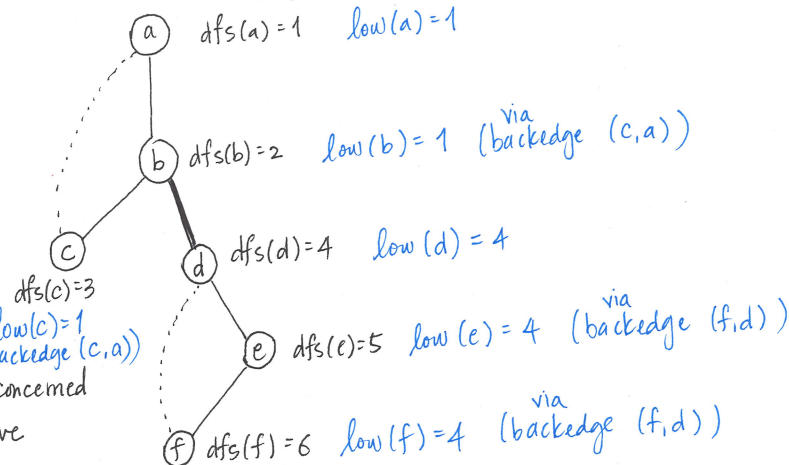 a dfs(a)=1 low(a)=1
b dfs(b)=2 low(b)=1 (via backedge (c,a))
c
d dfs(d)=4 low(d)=4
dfs(c)=3
low(c)=1
backedge (c,a))
e dfs(e)=5 low(e)=4 (via backedge (f,d))
concerned
f dfs(f)=6 low(f)=4 (via backedge (f,d))